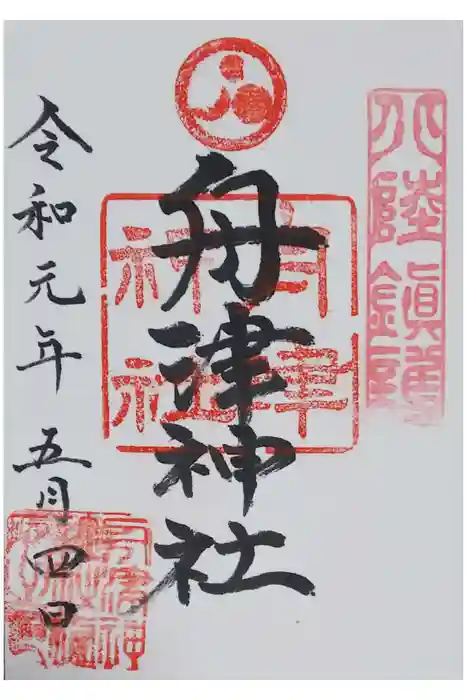 北陸鎭護
舟津神社
舟津
神社
令和元年 五月四日